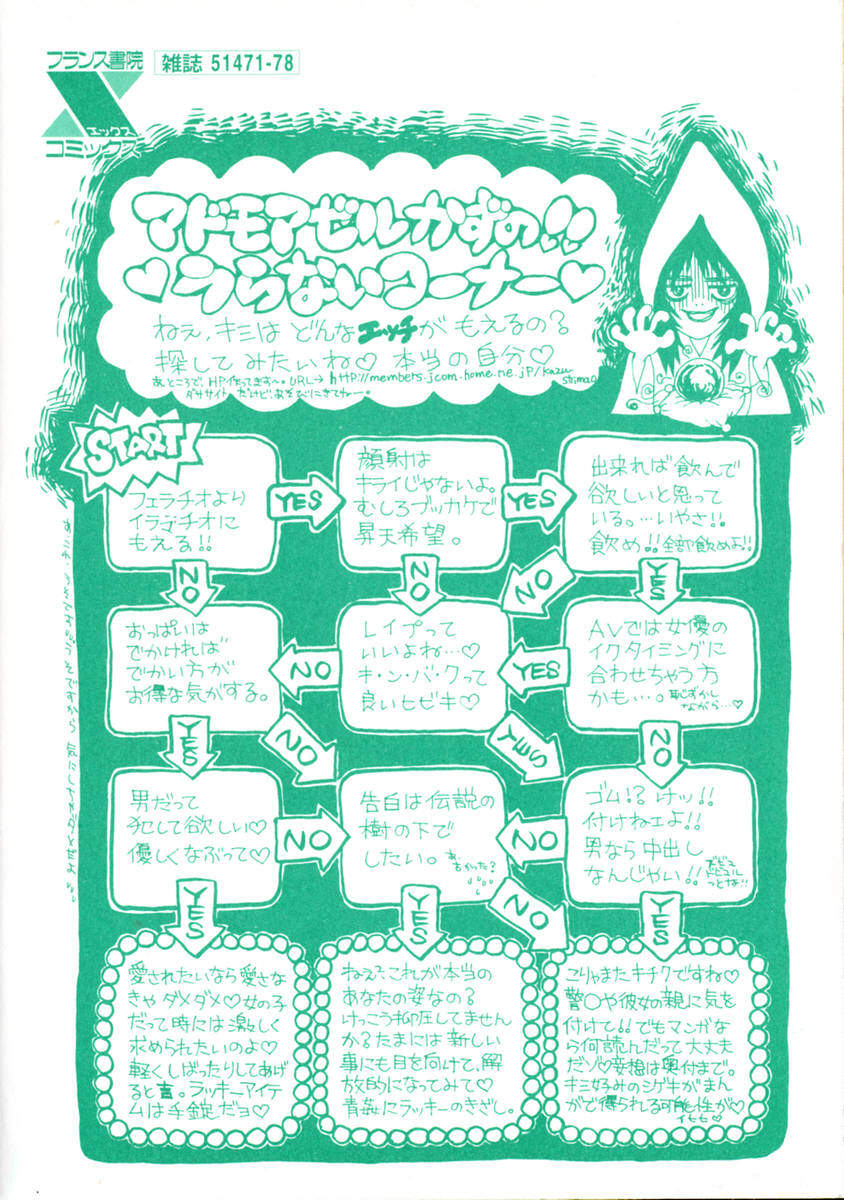 フランス書院
エックス
コミックス
雑誌 51471-78
マドモアゼルかずの!!
♡うらないコーナー♡
ねえ、キミは どんなエッチが もえるの?
探して みたいね♡ 本当の自分♡
あ、ところで、HP作ってきます〜。URL→http://members.jcom.home.ne.jp/kazu-
shima0
ダササイト だけど、あそびにきてねー。
START
フェラチオより
イラマチオに
もえる!!
YES
顔射は
キライじゃないよ。
むしろブッカケで
昇天希望。
YES
出来れば飲んで
欲しいと思って
いる。…いやさ!!
飲め!!全部飲めよ!!
NO
NO
NO
YES
おっぱいは
でかければ
でかい方が
お得な気がする。
NO
レイプって
いいよね…♡
キ・ン・バ・クって
良いヒビキ♡
YES
AVでは女優の
イクタイミングに
合わせちゃう方
かも…。恥ずかし
ながら…♡
YES
NO
YES
NO
男だって
犯して欲しい♡
優しくなぶって♡
NO
告白は伝説の
樹の下で
したい。
NO
ゴム!? けッ!!
付けねェよ!!
男なら中出し
なんじゃい!!
YES
YES
NO
YES
愛されたいなら愛さな
きゃ ダメダメ♡女の子
だって時には激しく
求められたいのよ♡
軽くしばったりしてあげ
ると吉。ラッキーアイテ
ムは手錠だヨ♡
ねえ?これが本当の
あなたの姿なの?
けっこう抑圧してません
か?たまには新しい
事にも目を向けて、解
放的になってみて♡
青姦にラッキーのきざし。
こりゃまたキチクですね♡
警〇や彼女の親に気を
付けて!!でもマンガな
ら何読んだって大丈夫
だゾ♡妄想は奥付まで。
キミ好みのシゲキがまん
がで得られる可能性が♡
イヒヒ♡